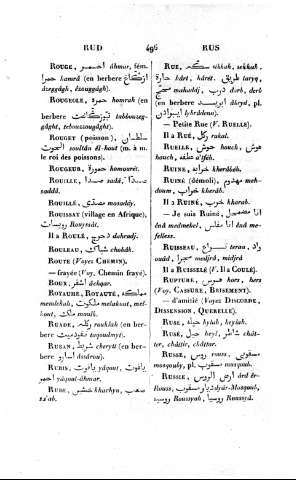 RUD 496 RUS
ROUGE, احمر âhmar, fém.
حمرا hamrâ (en berbere ازڭّاغ
azeggâgh, ézouggâgh).
ROUGEOLE, حمرة homrah (en
berbere
gâght, tebouzzouggâght.
ROUGET (poisson), سلطان
الحوت soultân êl-hout (m. à m.
le roi des poissons).
ROUGEUR, حمورة homouréh.
ROUILLE, صدا sadâ,
sadda.
ROUILLÉ, مصدّي mosaddy.
ROUISSAT (village en Afrique),
رويسات Rouyssât.
Il a ROULÉ, دحرج dahradj.
ROULEAU, شوباك choubâk.
ROUTE (Voyez CHEMIN).
— frayée (Voy. Chemin frayé).
ROUX, اشقر âchqar.
ROYAUME, ROYAUTÉ, مملكة
memlekah, ملكوت melakout, mel-
kout, ملك moulk.
RUADE, ركلة rauklah (en ber-
bere
RUBAN, شريط cheryt (en ber-
bere اسارو âsârou).
RUBIS, ياقوت yâqout, ياقوت
احمر yâqout-âhmar.
RUCHE, خشو khachou, صعب
sa'ab.
RUE, سكّة sikkah, sekkah.
حارة hârt, hârét. طريق taryq,
محجّ mahadjdj, درب darb, derb
(en berbere ابريد âbryd, pl.
ايبردان iybrâdenn).
— Petite Rue (V. RUELLE).
Il a RUÉ, ركل rakal.
RUELLE, حوش houch, حوش
houch, عطفة a'tféh.
RUINE, خرابة kherâbéh.
RUINÉ (démoli), مهدوم meh-
doum, خراب kherâb.
Il a RUINÉ, خرب kharab.
— Je suis Ruiné, انا منفصل
ênâ انا مفلس ênâ me-
feless.
RUISSEAU, ترعة terâah, واد
ouâd, مجرا medjrâ, medjrâ.
Il a RUISSELÉ (V. Il a COULÉ).
RUPTURE, هرس hers, hers
(Voy. CASSURE, BRISEMENT).
— d'amitié (Voyez DISCORDE,
DISSENSION, QUERELLE).
RUSE, حيلة hylah, heylah.
RUSÉ, حيل heyl. شاطر chât-
ter, châttir, châtter.
RUSSE, روس rouss, مسقوبي
mosqouby, pl. مسقوب mosqoub.
RUSSIE, ارض الروس ârd êr-
Rouss, ديار مسقوب dyâr-Mosqoub,
روسيا Roussyah, روسيه Roussyeh.